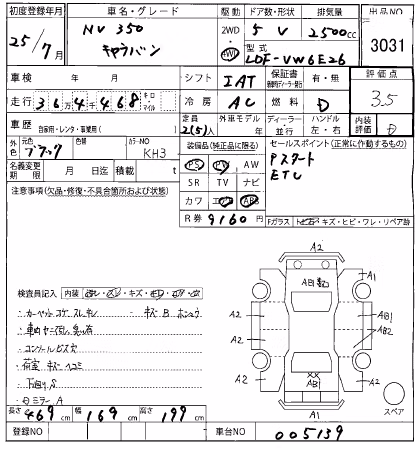 初度登録年月 車名・グレード 駆動 ドア数・形状 排気量 出品NO
25/7月 NV 350 キャラバン 2WD 4WD 5 V 2500cc 3031
型式 LDF-VW6E26
車検 年 月 シフト IAT 保証書 有・無 評価点 3.5
走行 36万4千468 キロ・マイル 冷房 AC 燃料 D
車歴 自家用・レンタ・事業用( ) 定員 2(5)人 外車モデル 年 ディーラー 並行 ハンドル 左・右 内装評価 D
外色 元色 ブラック 色替 カラーNO KH3 装備品(純正品に限る) セールスポイント(正常に作動するもの)
PS PW AW Pスタート
名義変更期限 月 日迄 積載 t SR TV ナビ ETC
注意事項(欠品・修復・不具合箇所および状態) カワ エアB ABS
R券 9160円 Fガラス トビ石・キズ・ヒビ・ワレ・リペア跡
A2
A1
A2
A2
A2
A2
AB1
AB2
XX
AB1
A1
スペア
検査員記入 内装
・カーペットコゲ スレ キレ
・キズ B
・コンソールビス穴
・荷室 キズ ヘコミ
・下廻りS
・ミラーA
長さ 469cm 幅 169cm 高さ 199cm
登録NO 車台NO 005139